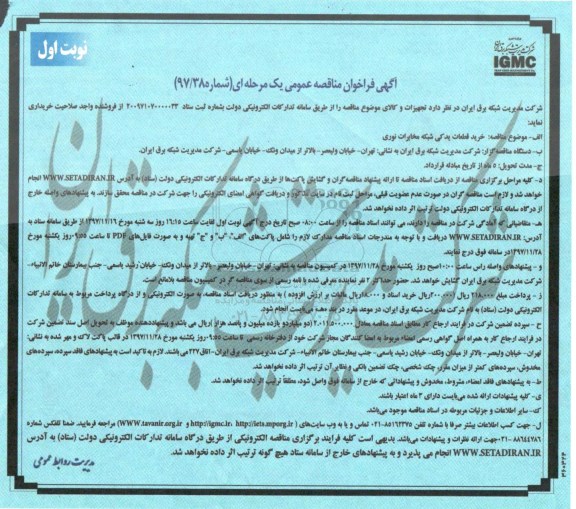 نوبت اول
شرکت مدیریت شبکه برق ایران
IGMC
آگهی فراخوان مناقصه عمومی یک مرحله ای(شماره۹۷/۳۸)
شرکت مدیریت شبکه برق ایران در نظر دارد تجهیزات و کالای موضوع مناقصه را از طریق سامانه تدارکات الکترونیکی دولت بشماره ثبت ستاد ۲۰۰۹۷۱۰۷۰۰۰۰۰۳۳ از فروشنده واجد صلاحیت خریداری
نماید:
الف- موضوع مناقصه: خرید قطعات یدکی شبکه مخابرات نوری
ب- دستگاه مناقصه گزار: شرکت مدیریت شبکه برق ایران به نشانی: تهران- خیابان ولیعصر- بالاتر از میدان ونک- خیابان یاسمی- شرکت مدیریت شبکه برق ایران.
ج- مدت تحویل: ۵ ماه از تاریخ مبادله قرارداد.
د- کلیه مراحل برگزاری مناقصه از دریافت اسناد مناقصه تا ارائه پیشنهاد مناقصه گران و گشایش پاکت‌ها از طریق درگاه سامانه تدارکات الکترونیکی دولت (ستاد) به آدرس WWW.SETADIRAN.IR انجام
خواهد شد و لازم است مناقصه گران در صورت عدم عضویت قبلی، مراحل ثبت نام در سایت مذکور و دریافت گواهی امضای الکترونیکی را جهت شرکت در مناقصه محقق سازند. به پیشنهادهای واصله خارج
از درگاه سامانه تدارکات الکترونیکی دولت ترتیب اثر داده نخواهد شد.
هـ- متقاضیانی که آمادگی شرکت در مناقصه را دارند، می توانند اسناد مناقصه را از ساعت ۰۸:۰۰ صبح تاریخ درج آگهی نوبت اول لغایت ساعت ۱۶:۱۵ روز سه شنبه مورخ ۱۳۹۷/۱۱/۱۶ از طریق سامانه ستاد به
آدرس: WWW.SETADIRAN.IR دریافت و با توجه به مندرجات اسناد مناقصه مدارک لازم را شامل پاکت‌های "الف"، "ب" و "ج" تهیه و به صورت فایل‌های PDF تا ساعت ۰۹:۵۵ روز یکشنبه مورخ
۱۳۹۷/۱۱/۲۸ در سامانه فوق درج نمایند.
و - پیشنهادهای واصله راس ساعت ۱۰:۰۰ صبح روز یکشنبه مورخ ۱۳۹۷/۱۱/۲۸ در کمیسیون مناقصه به نشانی: تهران- خیابان ولیعصر- بالاتر از میدان ونک- خیابان رشید یاسمی- جنب بیمارستان خاتم الانبیاء-
شرکت مدیریت شبکه برق ایران گشایش خواهد شد. حضور حداکثر ۲ نفر نماینده معرفی شده با نامه رسمی از سوی مناقصه گر در کمیسیون مناقصه بلامانع است.
ز - پرداخت مبلغ ۲۱۸,۰۰۰ ریال (۲۰۰,۰۰۰ ریال خرید اسناد و ۱۸,۰۰۰ ریال مالیات بر ارزش افزوده) به منظور دریافت اسناد مناقصه، به صورت الکترونیکی و از درگاه پرداخت مربوط به سامانه تدارکات
الکترونیکی دولت (ستاد) به نام شرکت مدیریت شبکه برق ایران، در موعد مقرر در بند هـ می‌بایست انجام شود.
ح - سپرده تضمین شرکت در فرایند ارجاع کار مطابق اسناد مناقصه معادل ۲,۰۱۱,۵۰۰,۰۰۰ (دو میلیارد و یازده میلیون و پانصد هزار) ریال می باشد و پیشنهاددهنده موظف به تحویل اصل سند تضمین شرکت
در فرایند ارجاع کار به همراه اصل گواهی رسمی امضاء مربوط به امضا کنندگان مجاز شرکت خود از دفترخانه رسمی تا ساعت ۰۹:۵۵ روز یکشنبه مورخ ۱۳۹۷/۱۱/۲۸ در قالب پاکت لاک و مهر شده به نشانی:
تهران- خیابان ولیعصر- بالاتر از میدان ونک- خیابان رشید یاسمی- جنب بیمارستان خاتم الانبیاء- شرکت مدیریت شبکه برق ایران- اتاق ۲۲۷ می باشند. لازم به تاکید است به پیشنهادهای فاقد سپرده، سپرده‌های
مخدوش، سپرده‌های کمتر از میزان مقرر، چک شخصی، چک تضمین بانکی و نظایر آن ترتیب اثر داده نخواهد شد.
ط- به پیشنهادهای فاقد امضاء، مشروط، مخدوش و پیشنهاداتی که خارج از سامانه فوق واصل شود، مطلقاً ترتیب اثر داده نخواهد شد.
ی- کلیه پیشنهادات ارائه شده می‌بایست دارای ۳ ماه اعتبار باشند.
ک- سایر اطلاعات و جزئیات مربوطه در اسناد مناقصه موجود می‌باشد.
ل- جهت کسب اطلاعات بیشتر صرفا با شماره تلفن ۰۲۱-۸۵۱۶۲۳۷۵ تماس و یا به وب سایت‌های (http://iets.mporg.ir ،http://igmc.ir و www.tavanir.org.ir) مراجعه فرمایید. ضمنا تلفکس شماره
۰۲۱-۸۸۶۴۴۷۸۶ جهت ارائه نظرات و پیشنهادات می‌باشد. بدیهی است کلیه فرایند برگزاری مناقصه الکترونیکی از طریق درگاه سامانه تدارکات الکترونیکی دولت (ستاد) به آدرس
WWW.SETADIRAN.IR انجام می پذیرد و به پیشنهادهای خارج از سامانه ستاد هیچ گونه ترتیب اثر داده نخواهد شد.
مدیریت روابط عمومی